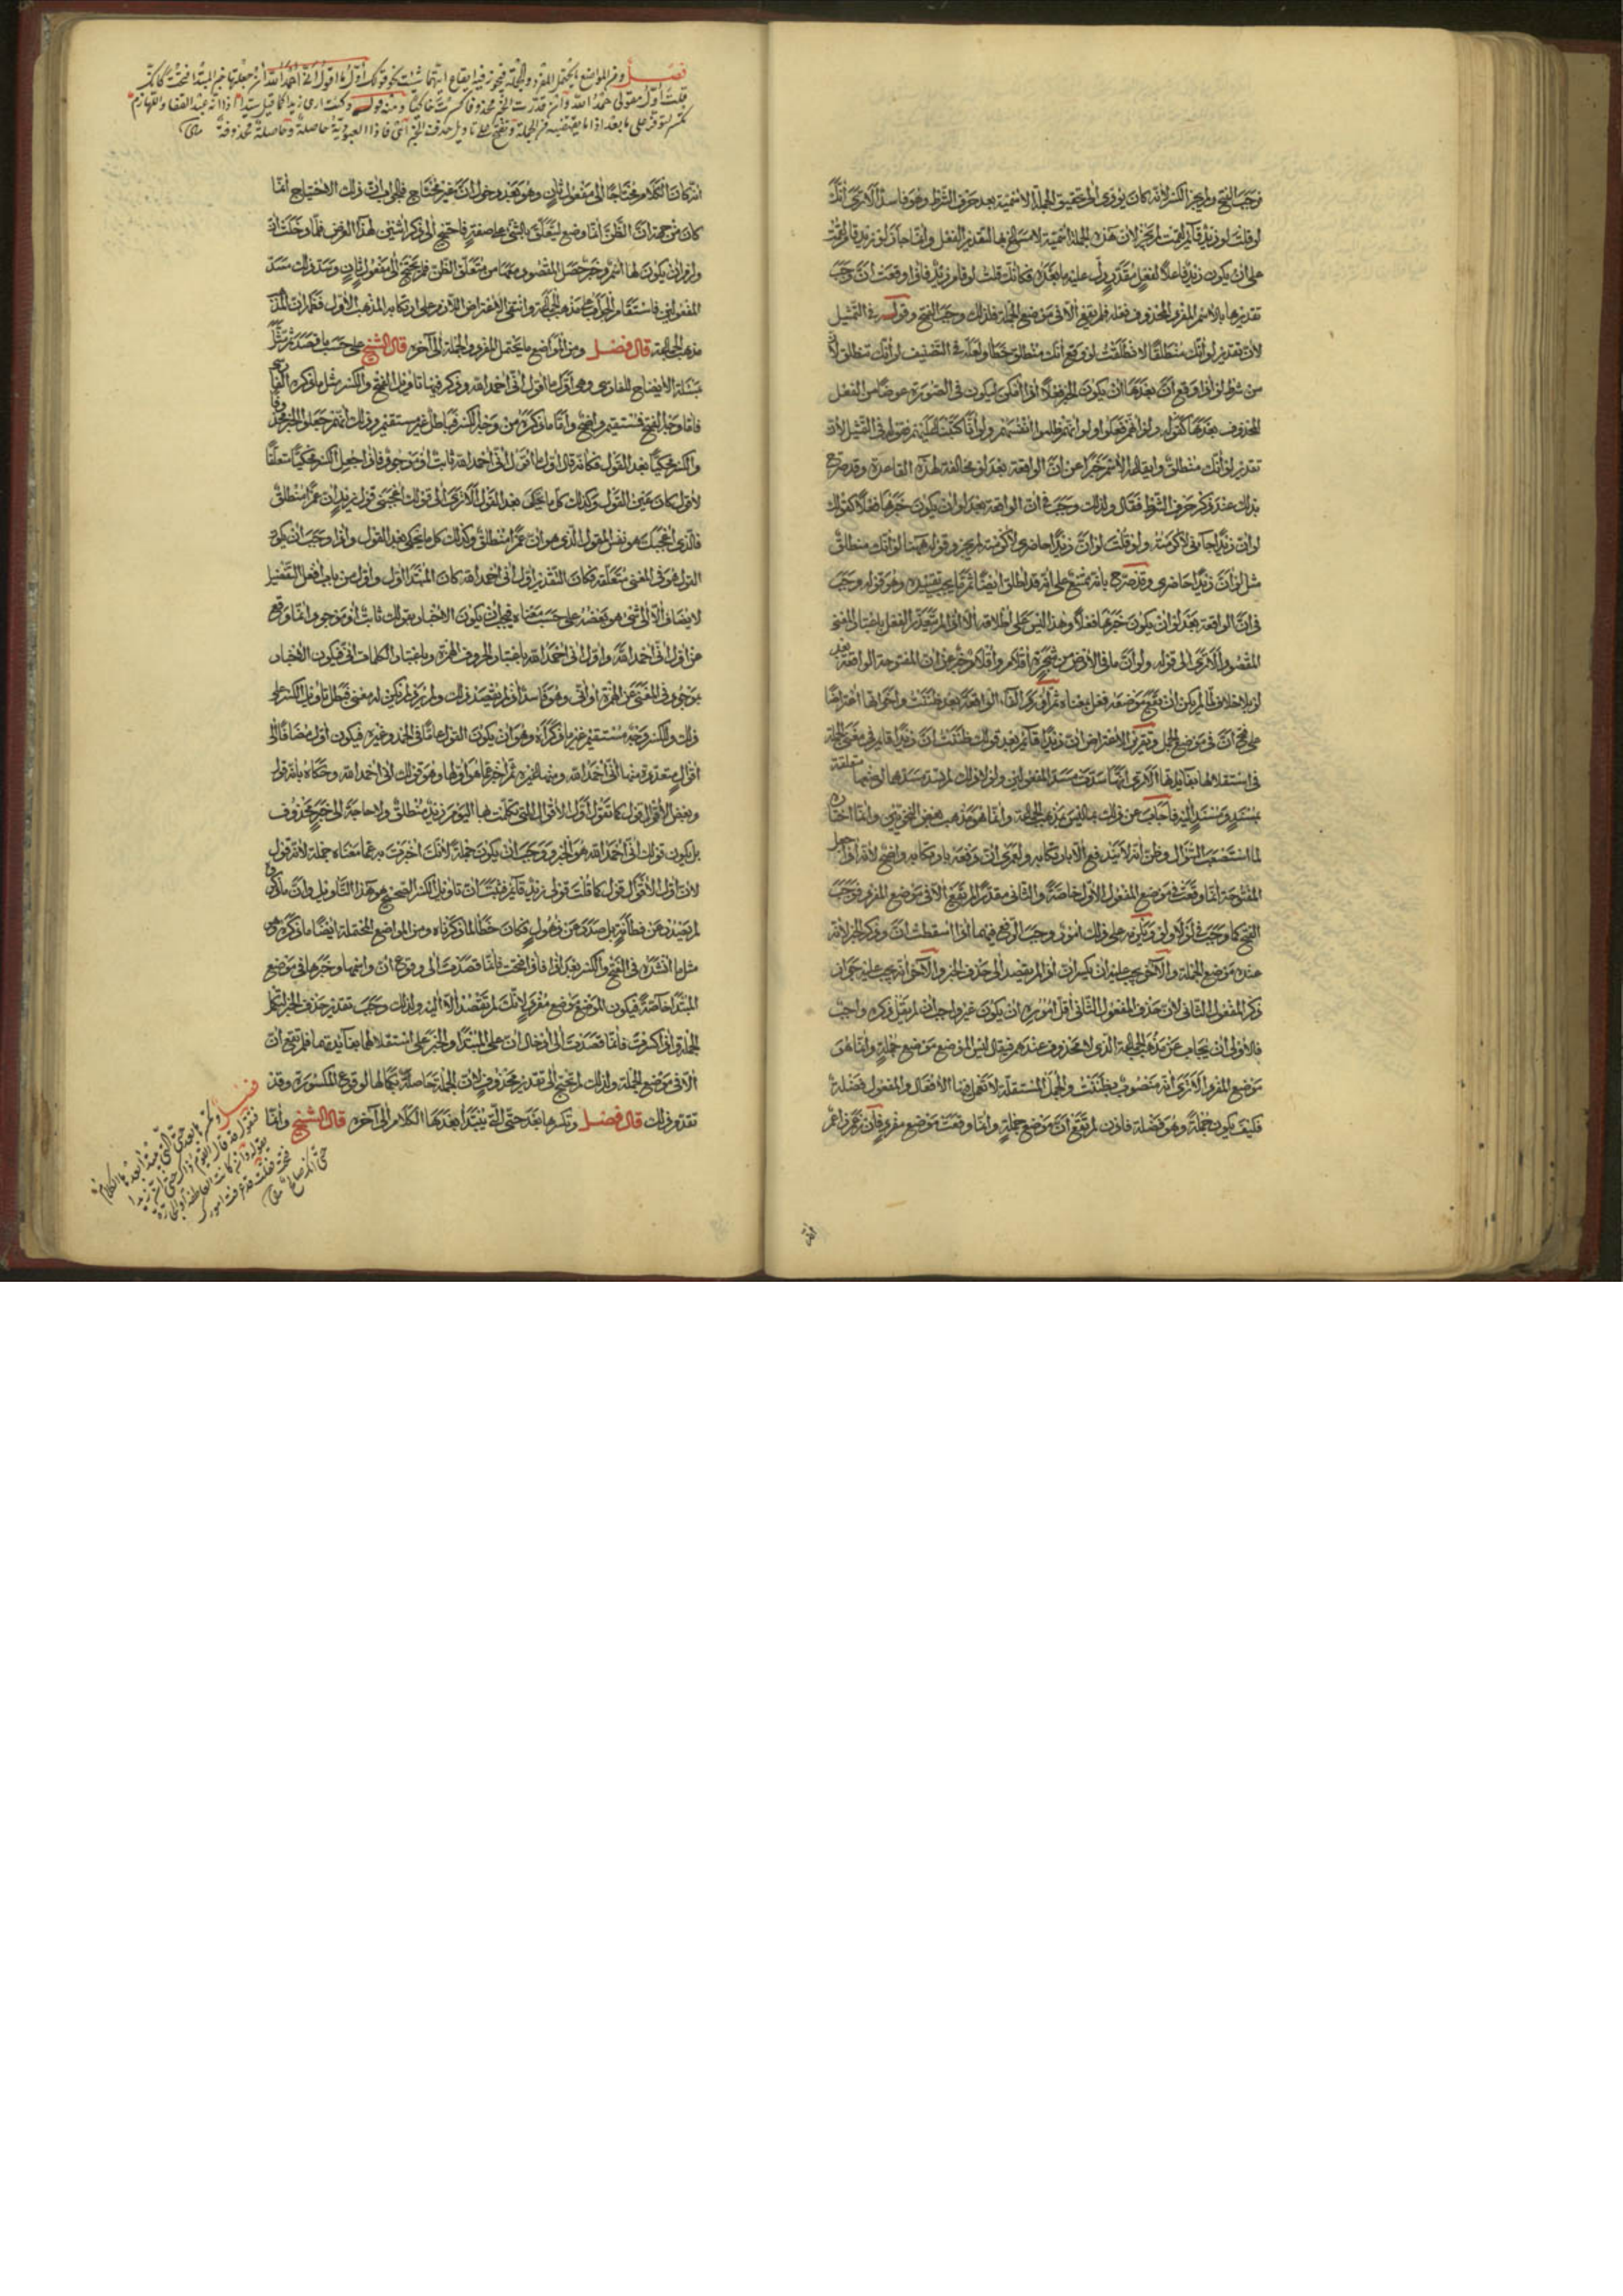 فوجب الفتح ولم يجز الكسر لأنه كان يؤدي إلى تحقيق الجملة الاسمية بعد حرف الشرط وهو فاسد ألا ترى أنك
لو قلت لو زيد قائم لقمت لم يجز لأن هذه الجملة اسمية لا مساغ فيها لتقدير الفعل وإنما جاز لو زيد قام لقمت
على أن يكون زيد فاعلا لفعل مقدر دل عليه ما بعده فكأنك قلت لو قام زيد فإذا وقعت أن وجب
تقديرها بالاسم المفرد المحذوف فعله فلم يقع إلا في موضع الجملة فلذلك وجب الفتح وقوله في التمثيل
لأن تقدير لو أنك منطلق لانطلقت لو وقع أنك منطلق خطأ ولعله في التصنيف لو أنك تنطلق لأن
من شرط لو إذا وقع أن بعدها أن يكون الخبر فعلا إذا أمكن ليكون في الصورة عوضا من الفعل
المحذوف بعدها كقوله ولو أنهم فعلوا ولو أنهم إذ ظلموا أنفسهم ولو أنا كتبنا عليهم فقوله في التمثيل لأن
تقدير لو أنك منطلق وإيقاعه الاسم خبرا عن أن الواقعة بعد لو مخالفة لهذه القاعدة وقد صرح
بذلك عند ذكر حرف الشرط فقال ولذلك وجب في أن الواقعة بعد لو أن يكون خبرها فعلا كقولك
لو أن زيدا جاءني لأكرمته ولو قلت لو أن زيدا حاضري لأكرمته لم يجز وقوله ههنا لو أنك منطلق
مثل لو أن زيدا حاضري وقد صرح بأنه ممتنع على أنه قد أطلق أيضا ثم ما يجب تقييده وهو قوله وجب
في أن الواقعة بعد لو أن يكون خبرها فعلا وهذا ليس على إطلاقه إلا إذا لم يتعذر الفعل باعتبار المعنى
المقصود ألا ترى إلى قوله ولو أن ما في الأرض من شجرة أقلام وأقلام خبر عن أن المفتوحة الواقعة بعد
لو بلا خلاف لما لم يمكن أن يقع موضعه فعل بمعناه ثم أورد الواقعة بعد ظننت وأخواتها اعتراضا
على فتح أن في موضع الجمل وتقرير الاعتراض أن زيدا قائم بعد قولك ظننت أن زيدا قائم في معنى الجملة
في استقلالها بفائدتها ألا ترى أنها سدت مسد المفعولين ولولا ذلك لم يسد مسدهما لوضعهما متعلقة
بمسند ومسند إليه فأجاب عن ذلك بما ليس مذهب الجماعة وإنما هو مذهب بعض النحويين وإنما اختاره
لما استصعب السؤال وظن أنه لا يندفع إلا بارتكابه ولعمري أن دفعه بارتكابه واضح لأنه إذا جعل
المفتوحة إنما وقعت في موضع المفعول الأول خاصة والثاني مقدر لم تقع إلا في موضع المفرد فوجب
الفتح كما وجب في لولا ولو
عنده موضع الجملة والآخر
ذكر المفعول الثاني لأن حذف المفعول الثاني أقل أموره أن يكون غير واجب
فالأولى أن يجاب عن مذهب الجماعة الذي لا محذوف عندهم فيقال ليس الموضع موضع جملة وإنما هو
موضع المفرد ألا ترى أنه منصوب بظننت والجمل المستقلة لا تعمل فيها الأفعال والمفعول فضلة
فكيف يكون جملة وهو فضلة فإذن لم تقع أن موضع جملة وإنما وقعت موضع مفرد فإن زعم زاعم
أنه
فصل ومن المواضع ما يحتمل المفرد والجملة فيجوز فيه إيقاع أيتهما شئت نحو قولك أول ما أقول أني أحمد الله إن جعلتها خبر المبتدأ فتحت كأنك
قلت أول مقولي حمد الله وإن قدرت الخبر محذوفا كسرت حاكيا ومنه قوله وكنت أرى زيدا كما قيل سيدا إذا أنه عبد القفا واللهازم
تكسر لتوفر على ما بعد إذا ما يقتضيه من الجملة وتفتح على تأويل حذف الخبر أي فإذا العبودية حاصلة وحاصلة محذوفة
أنه كان الكلام محتاجا إلى مفعول ثان وهو بعد دخول أن غير محتاج فالجواب أن ذلك الاحتياج إنما
كان من جهة أن الظن إنما وضع ليتعلق بالشيء على صفة فاحتيج إلى ذكر اثنين لهذا الغرض فلما دخلت أن
ولزم أن يكون لها اسم وخبر حصل المقصود بهما من متعلق الظن فلم يحتج إلى مفعول ثان وسد ذلك مسد
المفعولين فاستقام الجواب على مذهب الجماعة وانتفى الاعتراض اللازم على ارتكابه المذهب الأول فظهر أن المذهب
مذهب الجماعة قال فصل ومن المواضع ما يحتمل المفرد والجملة إلى آخره قال الشيخ على حسب ما قصد ثم مثل
بمسألة الإيضاح للفارسي وهي أول ما أقول أني أحمد الله وذكر فيها تأويل الفتح والكسر مثل ما ذكره الفارسي
فأما وجه الفتح فمستقيم واضح وأما ما ذكره من وجه الكسر فباطل غير مستقيم وذلك أنهم جعلوا الخبر محذوفا
والكسر محكيا بعد القول فكأنه قال أول ما أقول إني أحمد الله ثابت أو موجود فإذا جعل الكسر محكيا متعلقا
لأقول كان عين القول وكذلك كل ما يحكى بعد القول ألا ترى إلى قولك أعجبني قول زيد إن عمرا منطلق
فالذي أعجبك هو نفس المقول الذي هو إن عمرا منطلق وكذلك كل ما يحكى بعد القول وإذا وجب أن يكون
القول هو في المعنى متعلقه فكان التقدير أول إني أحمد الله كان المبتدأ أول وأول من باب أفعل التفضيل
لا يضاف إلا إلى شيء هو بعضه على حسب معناه فيجب أن يكون الإخبار بقولك ثابت أو موجود إنما وقع
عن أول إني أحمد الله وأول إني أحمد الله باعتبار الحروف الهمزة وباعتبار الكلمات إني فيكون الإخبار
بوجود في المعنى عن الهمزة أو إني وهو فاسد إذ لم يقصد ذلك ولم يرد ولم يكن له معنى فبطل تأويل الكسر على
ذلك وللكسر وجه مستقيم غير ما ذكراه وهو أن يكون القول عاما في الحمد وغيره فيكون أول مضافا إلى
أقوال متعددة منها إني أحمد الله ومنها غيره ثم أخبر بما هو أولها وهو قولك إني أحمد الله وحكاه بأنه قول
وبعض الأقوال قول كما تقول أول الأقوال التي تكلمت بها اليوم زيد منطلق ولا حاجة إلى خبر محذوف
بل يكون قولك إني أحمد الله هو الخبر ووجب أن يكون جملة لأنك أخبرت به عما معناه جملة لأنه قول
لأن أول الأقوال قول كما قلت قولي زيد قائم فثبت أن تأويل الكسر الصحيح هو هذا التأويل وأن ما ذكروه
لم يصدر عن فطانة بل صدر عن ذهول فكان خطأ لما ذكرناه ومن المواضع المحتملة أيضا ما ذكره من
مثل ما أنشده في الفتح والكسر بعد إذا فإذا فتحت فإنما قصدت إلى وقوع أن واسمها وخبرها في موضع
المبتدأ خاصة فيكون الموضع موضع مفرد لأنك لم تقصد إلا إليه ولذلك وجب تقدير حذف الخبر لتكمل
الجملة وإذا كسرت فإنما قصدت إلى إدخال إن على المبتدأ والخبر على استقلالهما بفائدتهما فلم تقع إن
إلا في موضع الجملة ولذلك لم تحتج إلى تقدير محذوف لأن الجملة حاصلة بكمالها لوقوع المكسورة وقد
تقدم ذلك قال فصل وتكسرها بعد حتى التي يبتدأ بعدها الكلام إلى آخره قال الشيخ وإنما
فصل وتكسرها بعد حتى التي يبتدأ بعدها الكلام
فتقول قد قال القوم ذاك حتى إن زيدا
يقوله وإن كانت العاطفة أو الجارة
فتحت فقلت قد عرفت أمورك
حتى أنك صالح